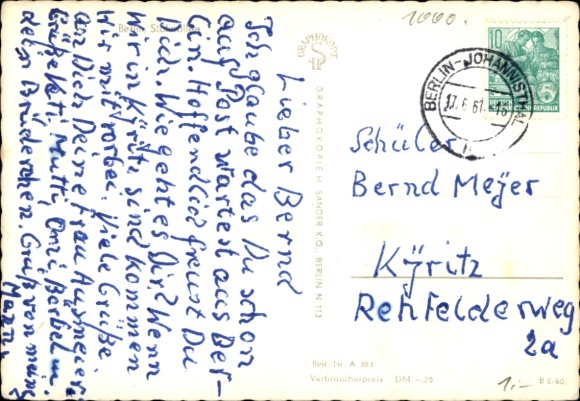 Lieber Bernd
Ich glaube das Du schon
auf Post wartest aus Ber-
lin. Hoffendlich freust Du
Dich. Wie geht es Dir? Wenn
wir in Kyritz sind kommen
Wir mit vorbei. Viele Grüße
an Dich Deine Frau Ausmeier
Grüße Kati, Mutti, Omi, Bärbel u.
dein Brüderchen. Gruß von meine
Mann.
Schüler
Bernd Meyer
Kyritz
Rehfelderweg
2a
1000.
10
DEUTSCHE DEMOKRATISCHE REPUBLIK
BERLIN-JOHANNISTHAL
17.6.61
GRAPHOKOPIE
GRAPHOKOPIE H. SANDER K.G., BERLIN N 113
Best. Nr. A 383
Verbraucherpreis DM -,25
1,-
B 8/60